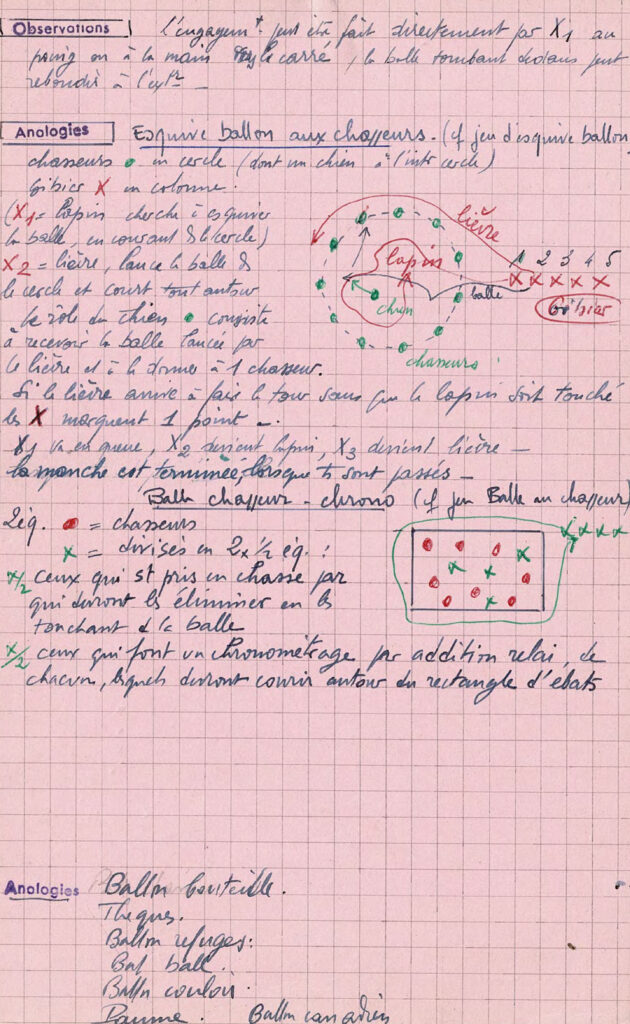 Observations L'engagemt peut être fait directement par X1 au
poing ou à la main le carré, la balle tombant dedans peut
rebondir à l'extr _
Anologies Esquive ballon aux chasseurs. (cf jeu d'esquive ballon
chasseurs en cercle (dont un chien à l'intr cercle)
Gibier X en colonne.
(X1 = lapin cherche à esquiver
la balle, en courant ds le cercle)
X2 = lièvre, lance la balle ds
le cercle et court tout autour
Le rôle du chien consiste
à recevoir la balle lancée par
le lièvre et à la donner à 1 chasseur.
lièvre
lapin
1 2 3 4 5
X X X X X
balle
Gibier
chien
chasseurs
Si le lièvre arrive à faire le tour sans que le lapin soit touché
les X marquent 1 point _.
X1 va en queue, X2 devient lapin, X3 devient lièvre _
la manche est terminée, lorsque ts sont passés _
Balle chasseur - chrono (cf jeu Balle au chasseur)
2 éq. = chasseurs
x = divisés en 2 x 1/2 éq :
x/2 ceux qui st pris en chasse par
qui devront les éliminer en les
touchant de la balle
x/2 ceux qui font un chronométrage par addition relai, de
chacun, lesquels devront courir autour du rectangle d'ébats
x x x x
Anologies Ballon bouteille.
Thèques.
Ballon refuges.
Bat ball.
Ballon couloir.
Paume. Ballon canadien